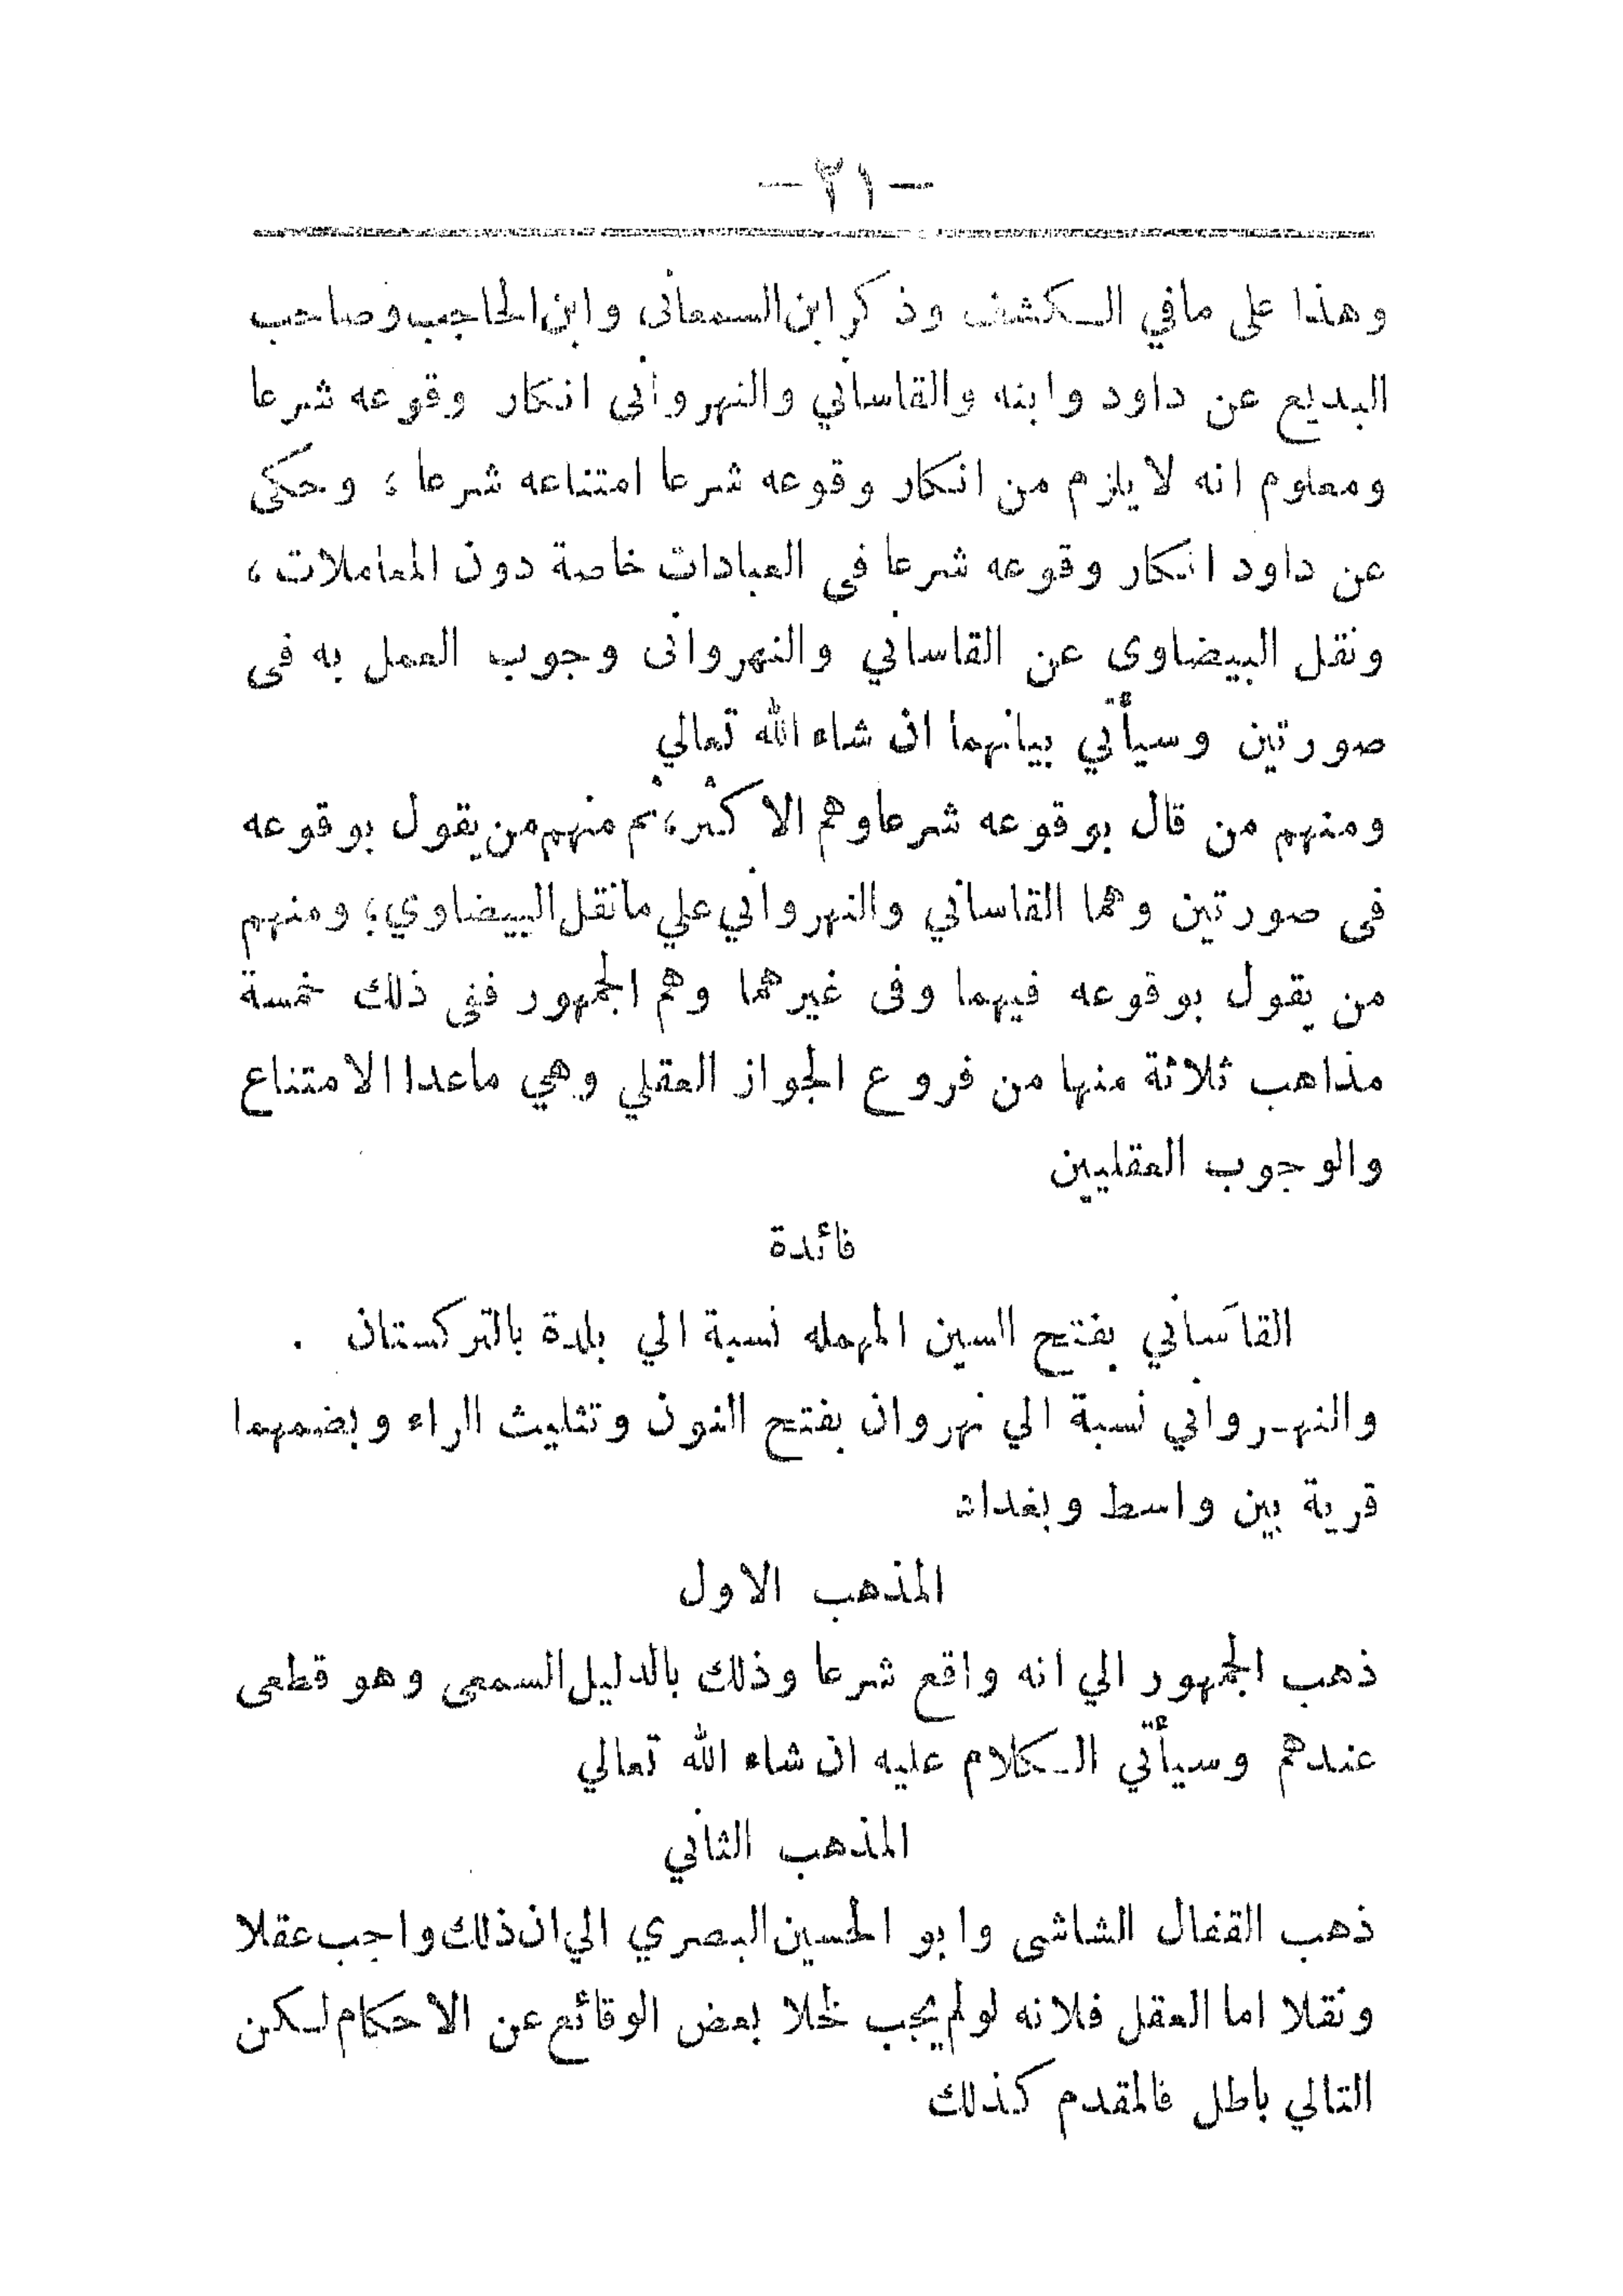 — ٢١ —
وهذا على مافي الكشف وذكر ابن السمعانى وابن الحاجب وصاحب
البديع عن داود وابنه والقاساني والنهروانى انكار وقوعه شرعا
ومعلوم انه لا يلزم من انكار وقوعه شرعا امتناعه شرعا ، وحكى
عن داود انكار وقوعه شرعا فى العبادات خاصة دون المعاملات ،
ونقل البيضاوى عن القاساني والنهروانى وجوب العمل به فى
صورتين وسيأتي بيانهما ان شاء الله تعالي
ومنهم من قال بوقوعه شرعا وهم الاكثر، ثم منهم من يقول بوقوعه
فى صورتين وهما القاساني والنهرواني علي مانقل البيضاوي ؛ ومنهم
من يقول بوقوعه فيهما وفى غيرهما وهم الجمهور ففى ذلك خمسة
مذاهب ثلاثة منها من فروع الجواز العقلي وهي ماعدا الامتناع
والوجوب العقليين
فائدة
القاَساني بفتح السين المهمله نسبة الي بلدة بالتركستان .
والنهرواني نسبة الي نهروان بفتح النون وتثليث الراء وبضمهما
قرية بين واسط وبغداد
المذهب الاول
ذهب الجمهور الي انه واقع شرعا وذلك بالدليل السمعى وهو قطعى
عندهم وسيأتي الكلام عليه ان شاء الله تعالي
المذهب الثاني
ذهب القفال الشاشى وابو الحسين البصري الي ان ذلك واجب عقلا
ونقلا اما العقل فلانه لولم يجب لخلا بعض الوقائع عن الاحكام لكن
التالي باطل فالمقدم كذلك